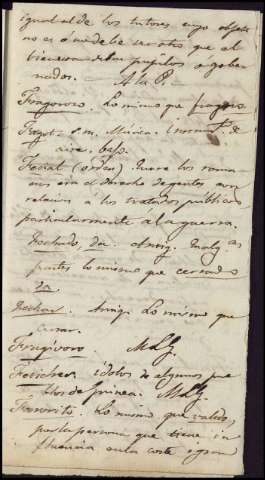 igual al de los tutores cuyo objeto
no es ó no debe ser otro que el
bien de los pupilos o gober
nados.
A la P.
Fragoroso. Lo mismo que fragoso
Fagot. s.m. Música. Instrumt. de
aire. bajo.
Fecial (orden) Entre los roma
nos era el derecho de gentes con
relacion a los tratados publicos
particularmente a la guerra.
Fechado, da. Antiq. En alg. as
partes lo mismo que cerrado
da.
Fechar. Antiq. Lo mismo que
cerrar.
Frugivoro
Fetiches. idolos de algunos pue
blos de Guinea.
Favorito. Lo mismo que valido,
pasta persona que tiene in
fluencia en la corte o gran